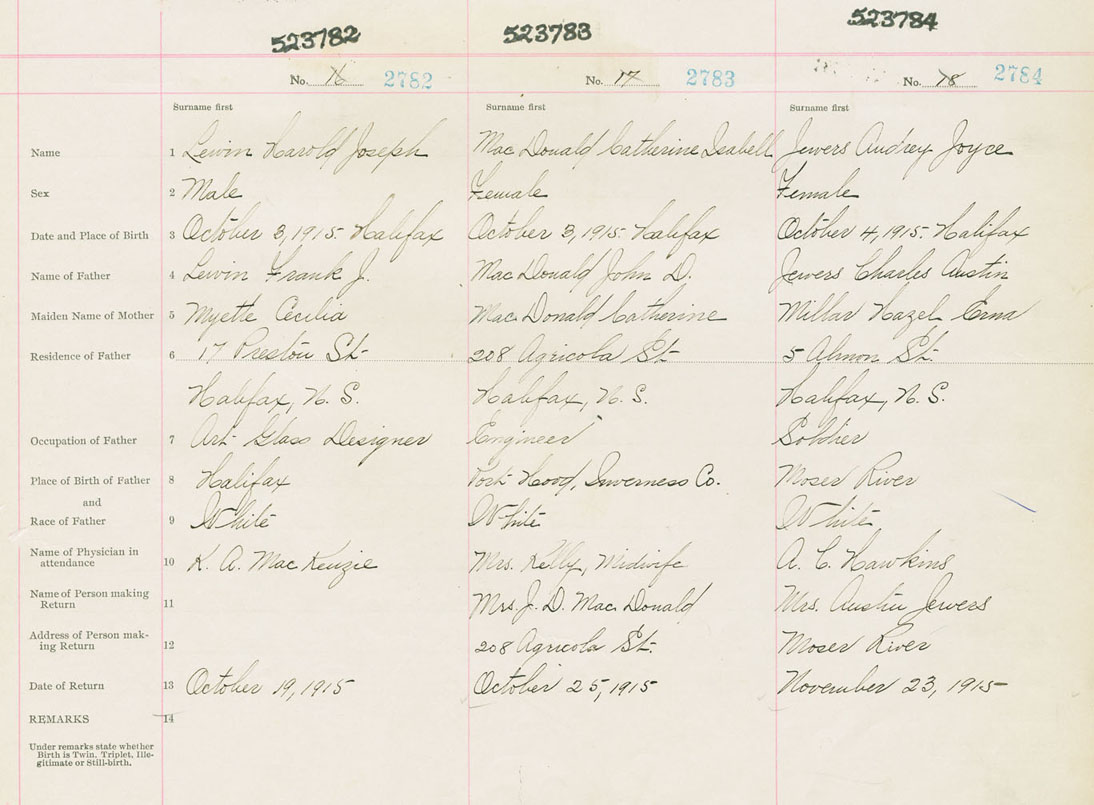 523782 523783 523784
No. 16 2782 No. 17 2783 No. 18 2784
Surname first Surname first Surname first
Name 1 Lewin Harold Joseph Mac Donald Catherine Isabell Jewers Audrey Joyce
Sex 2 Male Female Female
Date and Place of Birth 3 October 3, 1915 - Halifax October 3, 1915 - Halifax October 4, 1915 - Halifax
Name of Father 4 Lewin Frank J. Mac Donald John D. Jewers Charles Austin
Maiden Name of Mother 5 Myette Cecilia Mac Donald Catherine Millar Hazel Erna
Residence of Father 6 17 Preston St. 208 Agricola St. 5 Almon St.
Halifax, N. S. Halifax, N. S. Halifax, N. S.
Occupation of Father 7 Art Glass Designer Engineer Soldier
Place of Birth of Father 8 Halifax Port Hood, Inverness Co. Moser River
and
Race of Father 9 White White White
Name of Physician in
attendance 10 K. A. Mac Kenzie Mrs. Kelly, Midwife A. C. Hawkins
Name of Person making
Return 11 Mrs. J. D. Mac Donald Mrs. Austin Jewers
Address of Person mak-
ing Return 12 208 Agricola St. Moser River
Date of Return 13 October 19, 1915 October 25, 1915 November 23, 1915
REMARKS 14
Under remarks state whether
Birth is Twin. Triplet, Ille-
gitimate or Still-birth.